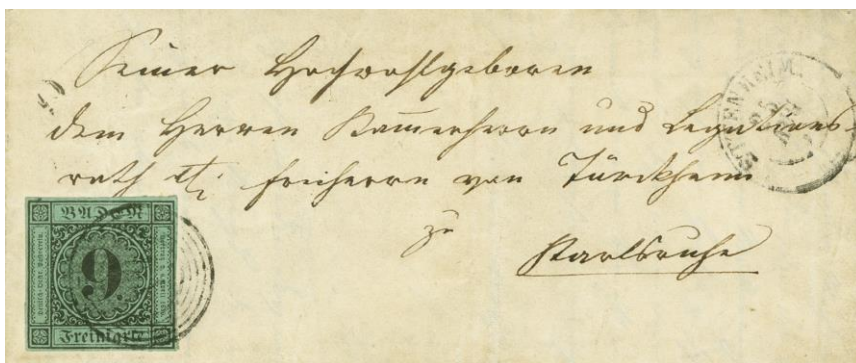 Seiner Hochwohlgeboren
dem Herren Kammerherrn und Legations-
rath Freiherrn von Türckheim
zu
Karlsruhe
BADEN
9
Freimarke
25